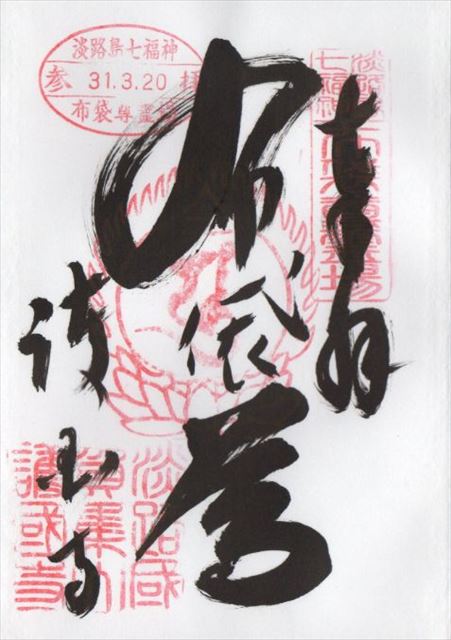 奉拝
淡路島七福神
参 31.3.20 拝
布袋尊霊場
布袋尊
護国寺
淡路國
賀集山
護國寺